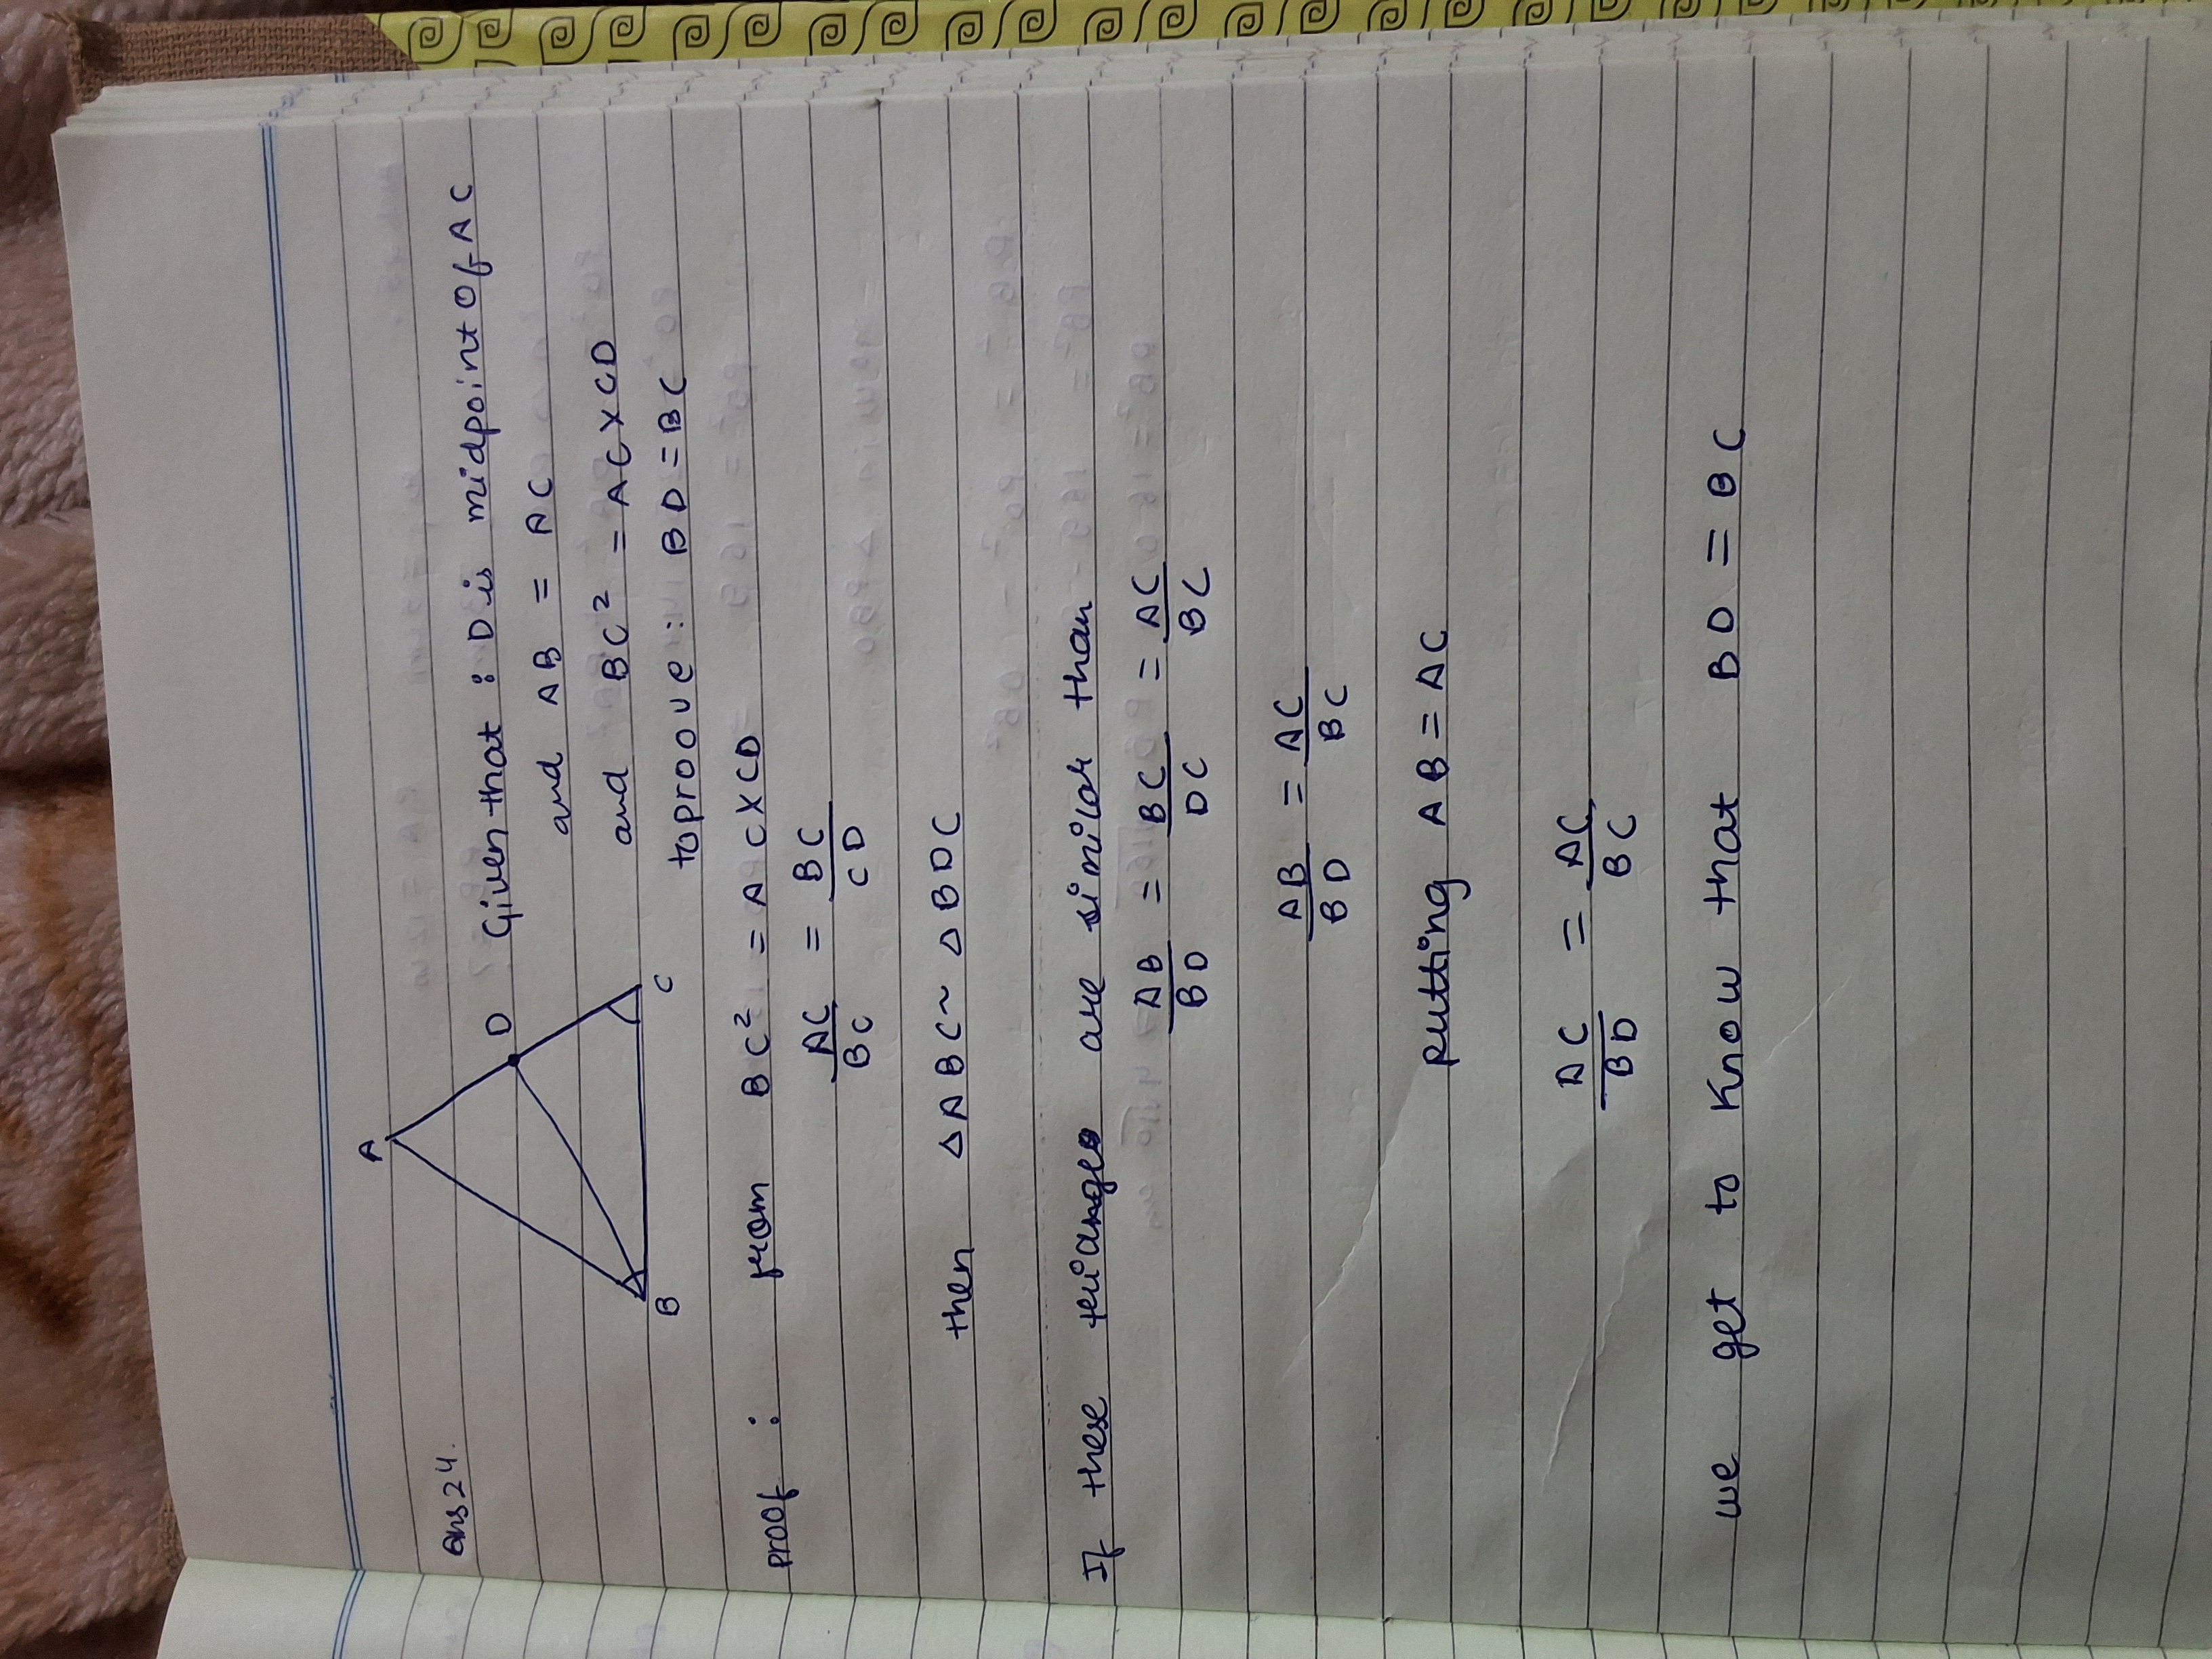 Ans 24.
A
D
B
C
Given that : D is midpoint of AC
and AB = AC
and BC² = AC × CD
to proove : BD = BC
proof : from BC² = AC × CD
AC/BC = BC/CD
then △ABC ~ △BDC
If these triangles are similar than
AB/BD = BC/DC = AC/BC
AB/BD = AC/BC
putting AB = AC
AC/BD = AC/BC
we get to know that BD = BC